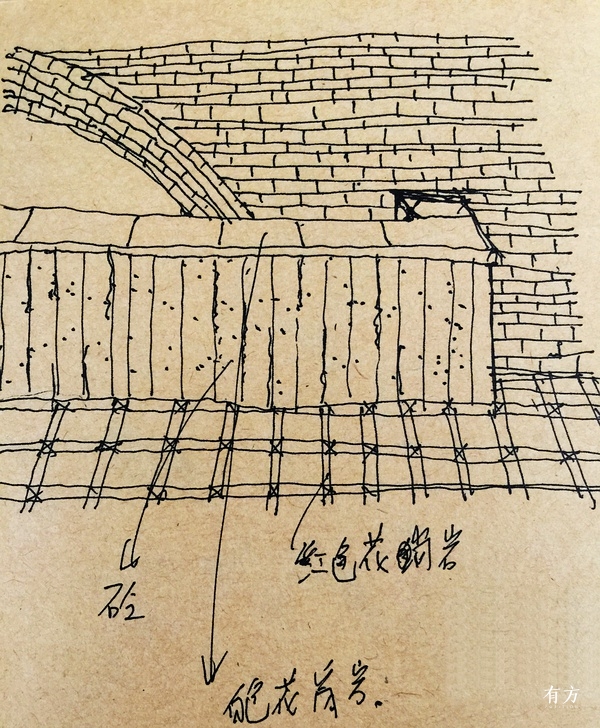 红色花岗岩
砼
白色花岗岩.
有方